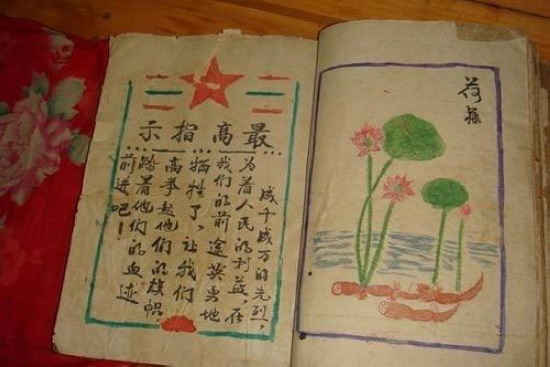 最高指示
成千成万的先烈，
为着人民的利益，在
我们的前途英勇地
牺牲了，让我们
高举起他们的旗帜
踏着他们的血迹
前进吧！
荷藕